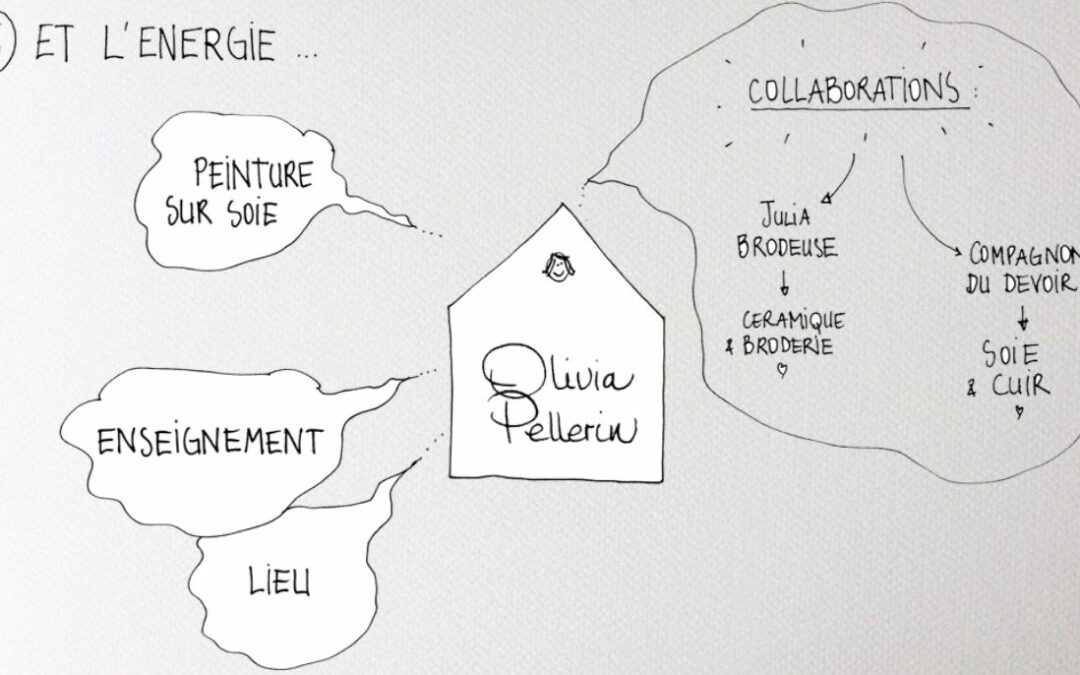 ET L'ENERGIE ...
PEINTURE
SUR SOIE
ENSEIGNEMENT
LIEU
Olivia
Pellerin
COLLABORATIONS :
JULIA
BRODEUSE
CERAMIQUE
& BRODERIE
COMPAGNON
DU DEVOIR
SOIE
& CUIR